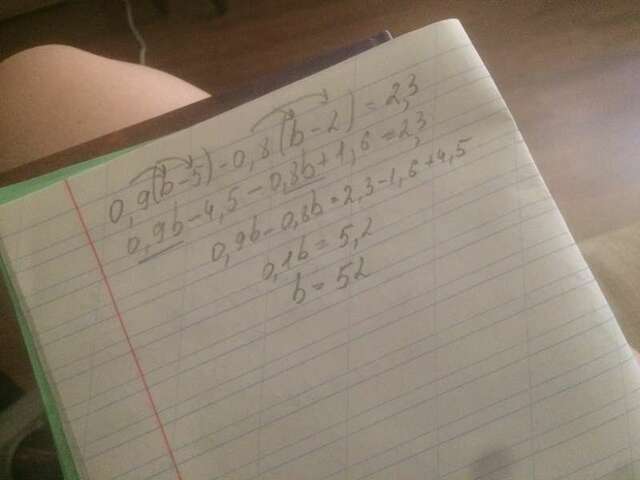 0,9(b-5)-0,8(b-2)=2,3
0,9b-4,5-0,8b+1,6=2,3
0,9b-0,8b=2,3-1,6+4,5
0,1b=5,2
b=52